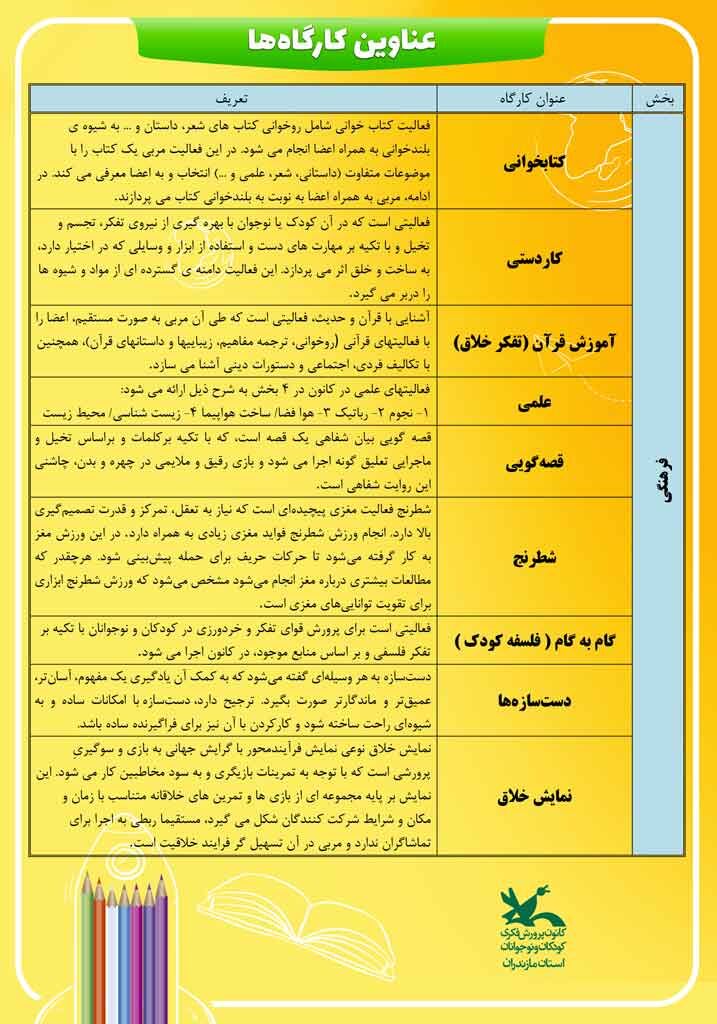 عناوین کارگاه‌ها
بخش
عنوان کارگاه
تعریف
فرهنگی
کتابخوانی
فعالیت کتاب خوانی شامل روخوانی کتاب های شعر، داستان و ... به شیوه ی
بلندخوانی به همراه اعضا انجام می شود. در این فعالیت مربی یک کتاب را با
موضوعات متفاوت (داستانی، شعر، علمی و ...) انتخاب و به اعضا معرفی می کند. در
ادامه، مربی به همراه اعضا به نوبت به بلندخوانی کتاب می پردازند.
کاردستی
فعالیتی است که در آن کودک یا نوجوان با بهره گیری از نیروی تفکر، تجسم و
تخیل و با تکیه بر مهارت های دست و استفاده از ابزار و وسایلی که در اختیار دارد،
به ساخت و خلق اثر می پردازد. این فعالیت دامنه ی گسترده ای از مواد و شیوه ها
را دربر می گیرد.
آموزش قرآن (تفکر خلاق)
آشنایی با قرآن و حدیث، فعالیتی است که طی آن مربی به صورت مستقیم، اعضا را
با فعالیتهای قرآنی (روخوانی، ترجمه مفاهیم، زیباییها و داستانهای قرآن)، همچنین
با تکالیف فردی، اجتماعی و دستورات دینی آشنا می سازد.
علمی
فعالیتهای علمی در کانون در ۴ بخش به شرح ذیل ارائه می شود:
۱- نجوم ۲- رباتیک ۳- هوا فضا/ ساخت هواپیما ۴- زیست شناسی/ محیط زیست
قصه‌گویی
قصه گویی بیان شفاهی یک قصه است، که با تکیه برکلمات و براساس تخیل و
ماجرایی تعلیق گونه اجرا می شود و بازی رقیق و ملایمی در چهره و بدن، چاشنی
این روایت شفاهی است.
شطرنج
شطرنج فعالیت مغزی پیچیده‌ای است که نیاز به تعقل، تمرکز و قدرت تصمیم‌گیری
بالا دارد. انجام ورزش شطرنج فواید مغزی زیادی به همراه دارد، در این ورزش مغز
به کار گرفته می‌شود تا حرکات حریف برای حمله پیش‌بینی شود. هرچقدر که
مطالعات بیشتری درباره مغز انجام می‌شود مشخص می‌شود که ورزش شطرنج ابزاری
برای تقویت توانایی‌های مغزی است.
گام به گام ( فلسفه کودک )
فعالیتی است برای پرورش قوای تفکر و خردورزی در کودکان و نوجوانان با تکیه بر
تفکر فلسفی و بر اساس منابع موجود، در کانون اجرا می شود.
دست‌سازه‌ها
دست‌سازه به هر وسیله‌ای گفته می‌شود که به کمک آن یادگیری یک مفهوم، آسان‌تر،
عمیق‌تر و ماندگارتر صورت بگیرد. ترجیح دارد، دست‌سازه با امکانات ساده و به
شیوه‌ای راحت ساخته شود و کارکردن با آن نیز برای فراگیرنده ساده باشد.
نمایش خلاق
نمایش خلاق نوعی نمایش فرآیندمحور با گرایش جهانی به بازی و سوگیریِ
پرورشی است که با توجه به تمرینات بازیگری و به سود مخاطبین کار می شود. این
نمایش بر پایه مجموعه ای از بازی ها و تمرین های خلاقانه متناسب با زمان و
مکان و شرایط شرکت کنندگان شکل می گیرد، مستقیما ربطی به اجرا برای
تماشاگران ندارد و مربی در آن تسهیل گر فرایند خلاقیت است.
کانون پرورش فکری
کودکان و نوجوانان
استان مازندران